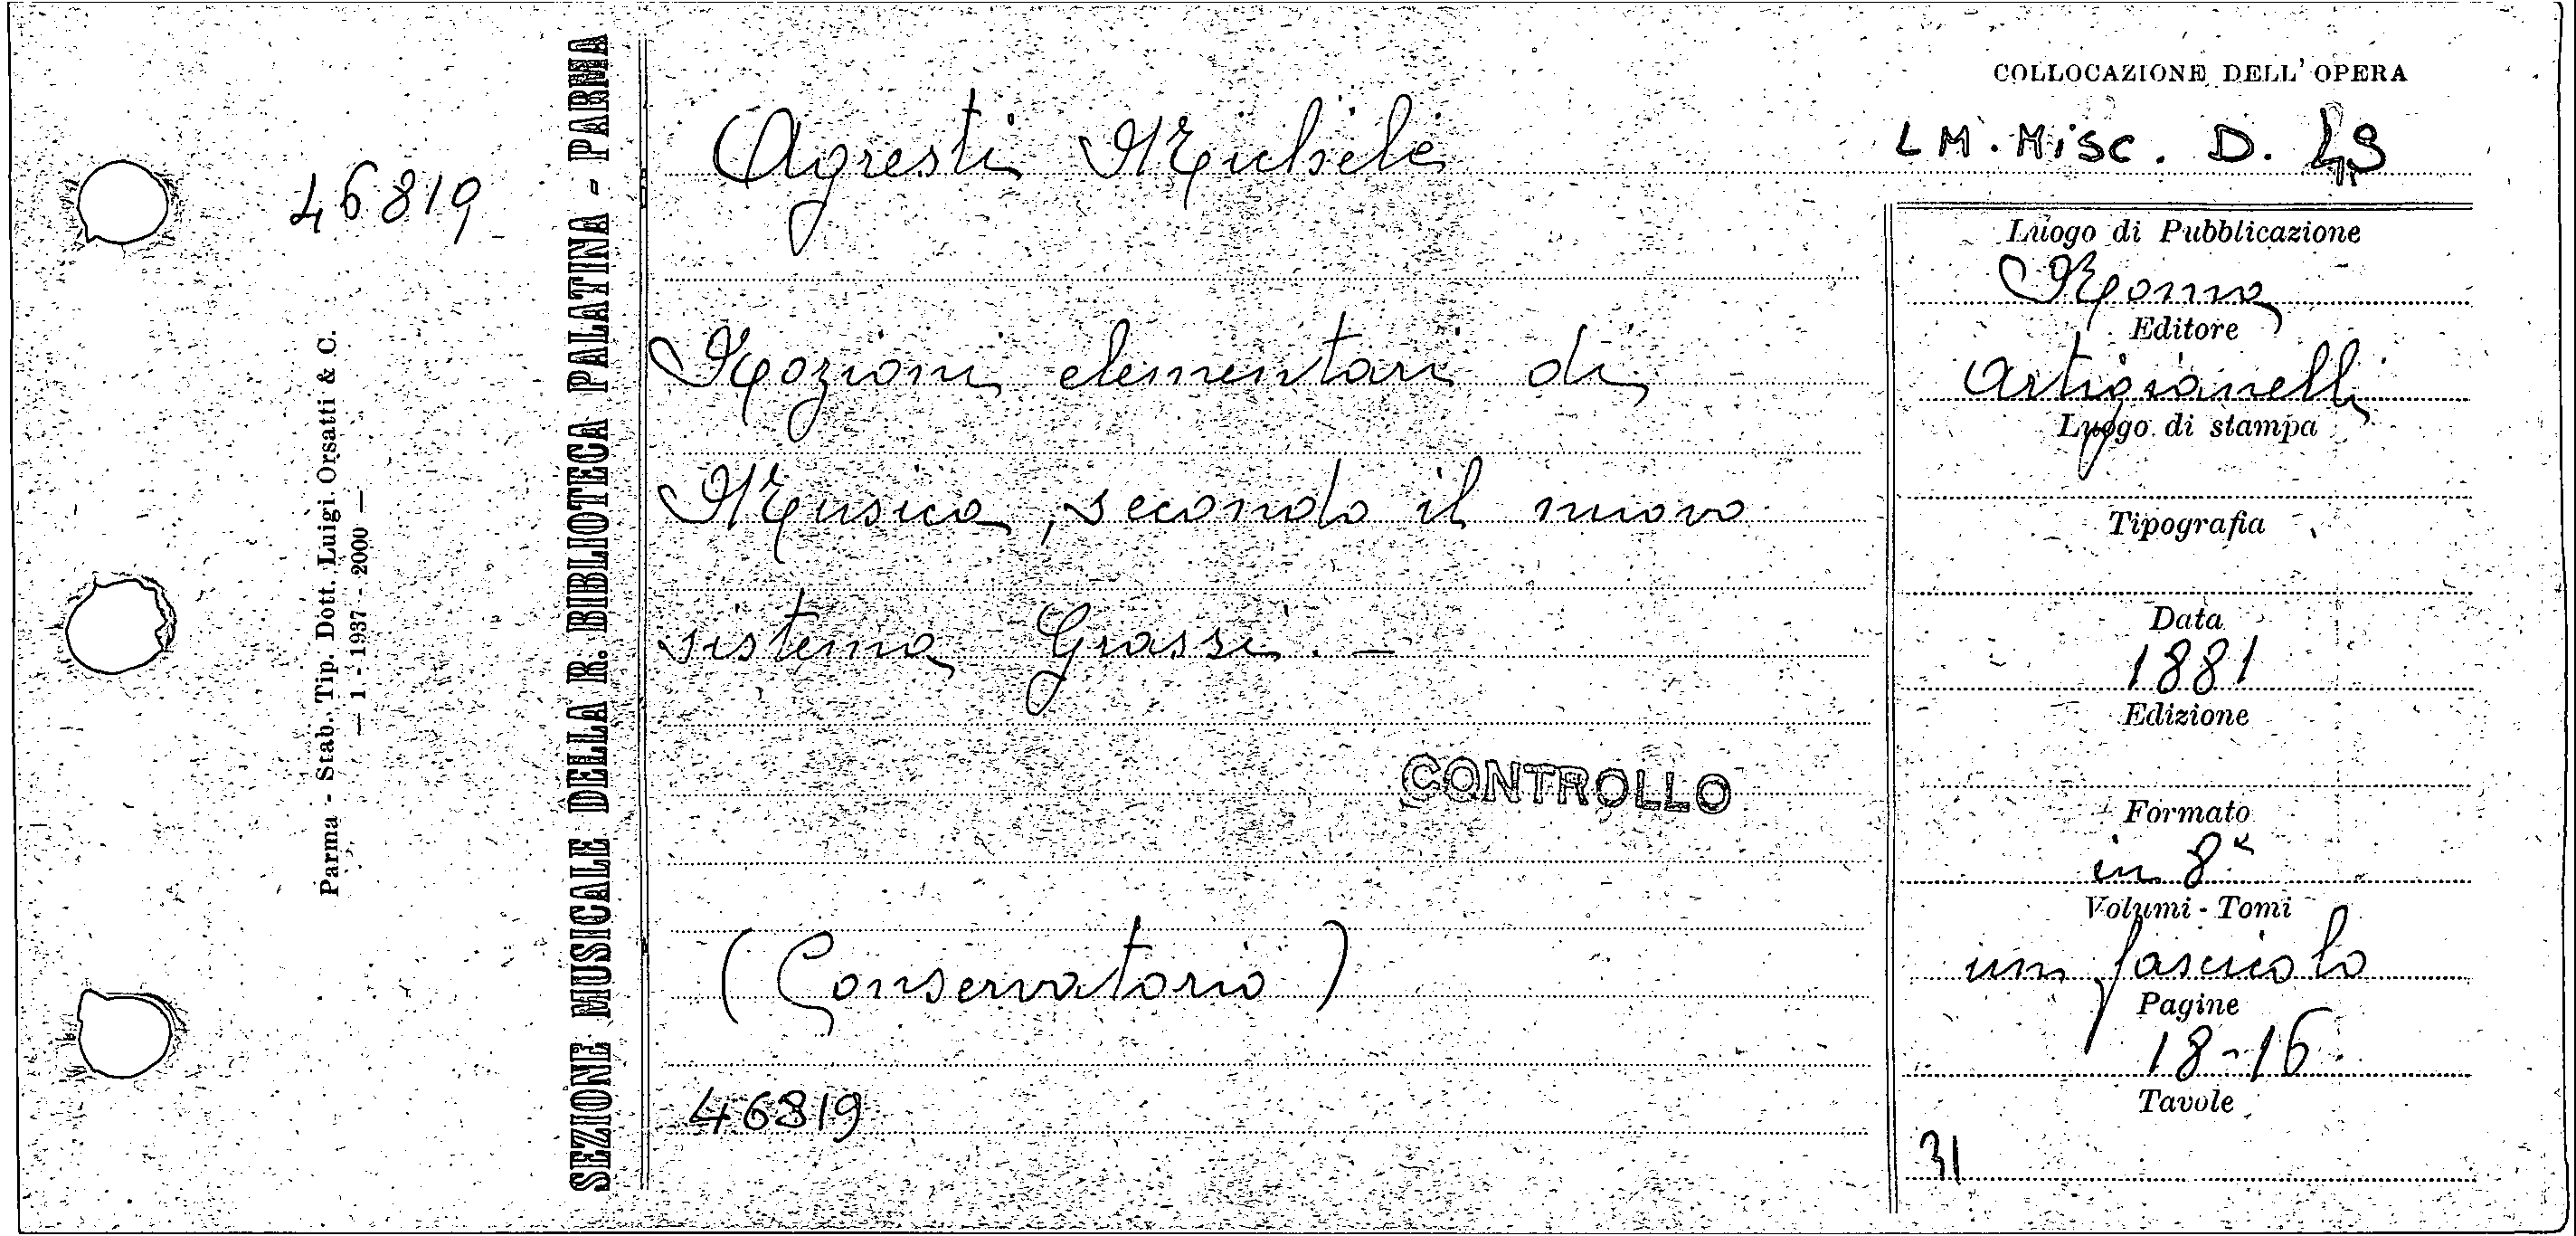 46819
Parma - Stab. Tip. Dott. Luigi Orsatti & C.
— 1 - 1937 - 2000 —
SEZIONE MUSICALE DELLA R. BIBLIOTECA PALATINA - PARMA
Agresti Michele
Nozioni elementari di
Musica, secondo il nuovo
sistema Grassi. —
CONTROLLO
(Conservatorio)
46819
COLLOCAZIONE DELL'OPERA
LM. Misc. D.
Luogo di Pubblicazione
Roma
Editore
Artigianelli
Luogo di stampa
Tipografia
Data
1881
Edizione
Formato
in 8°
Volumi - Tomi
un fascicolo
Pagine
18-16
Tavole
31